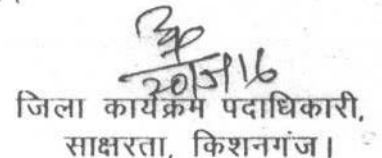 20/5/16
जिला कार्यक्रम पदाधिकारी,
साक्षरता, किशनगंज।